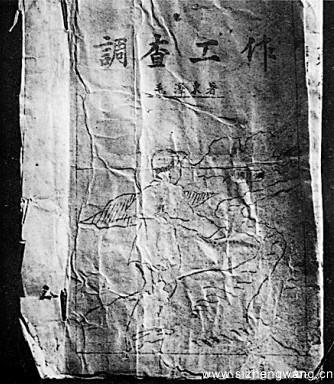 調查工作
毛澤東著
www.sizhengwang.cn